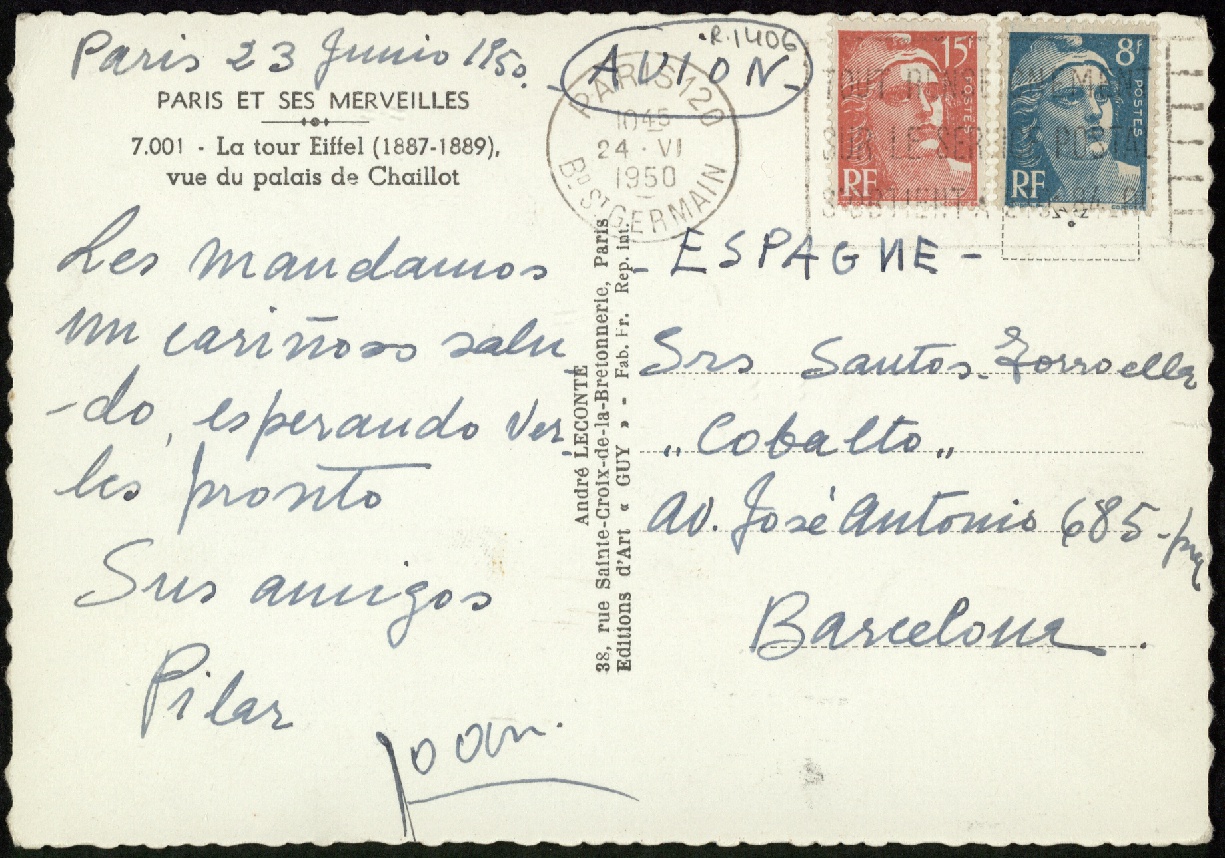 Paris 23 Junio 1950.
PARIS ET SES MERVEILLES
7.001 - La tour Eiffel (1887-1889),
vue du palais de Chaillot
Les mandamos
un cariñoso salu
-do, esperando ver
les pronto
Sus amigos
Pilar
Joan
André LECONTE
38, rue Sainte-Croix-de-la-Bretonnerie, Paris
Editions d'Art « GUY » - Fab. Fr. Rep. int.
R.1406
- AVION -
PARIS 120
1045
24 - VI
1950
BD ST GERMAIN
TOUT RENSEIGNEMENT
SUR LE SERVICE POSTAL
S'OBTIENT A
15f
POSTES
RF
8f
POSTES
RF
- ESPAGNE -
Srs Santos Torroella
"Cobalto"
Av. José Antonio 685-
Barcelona.